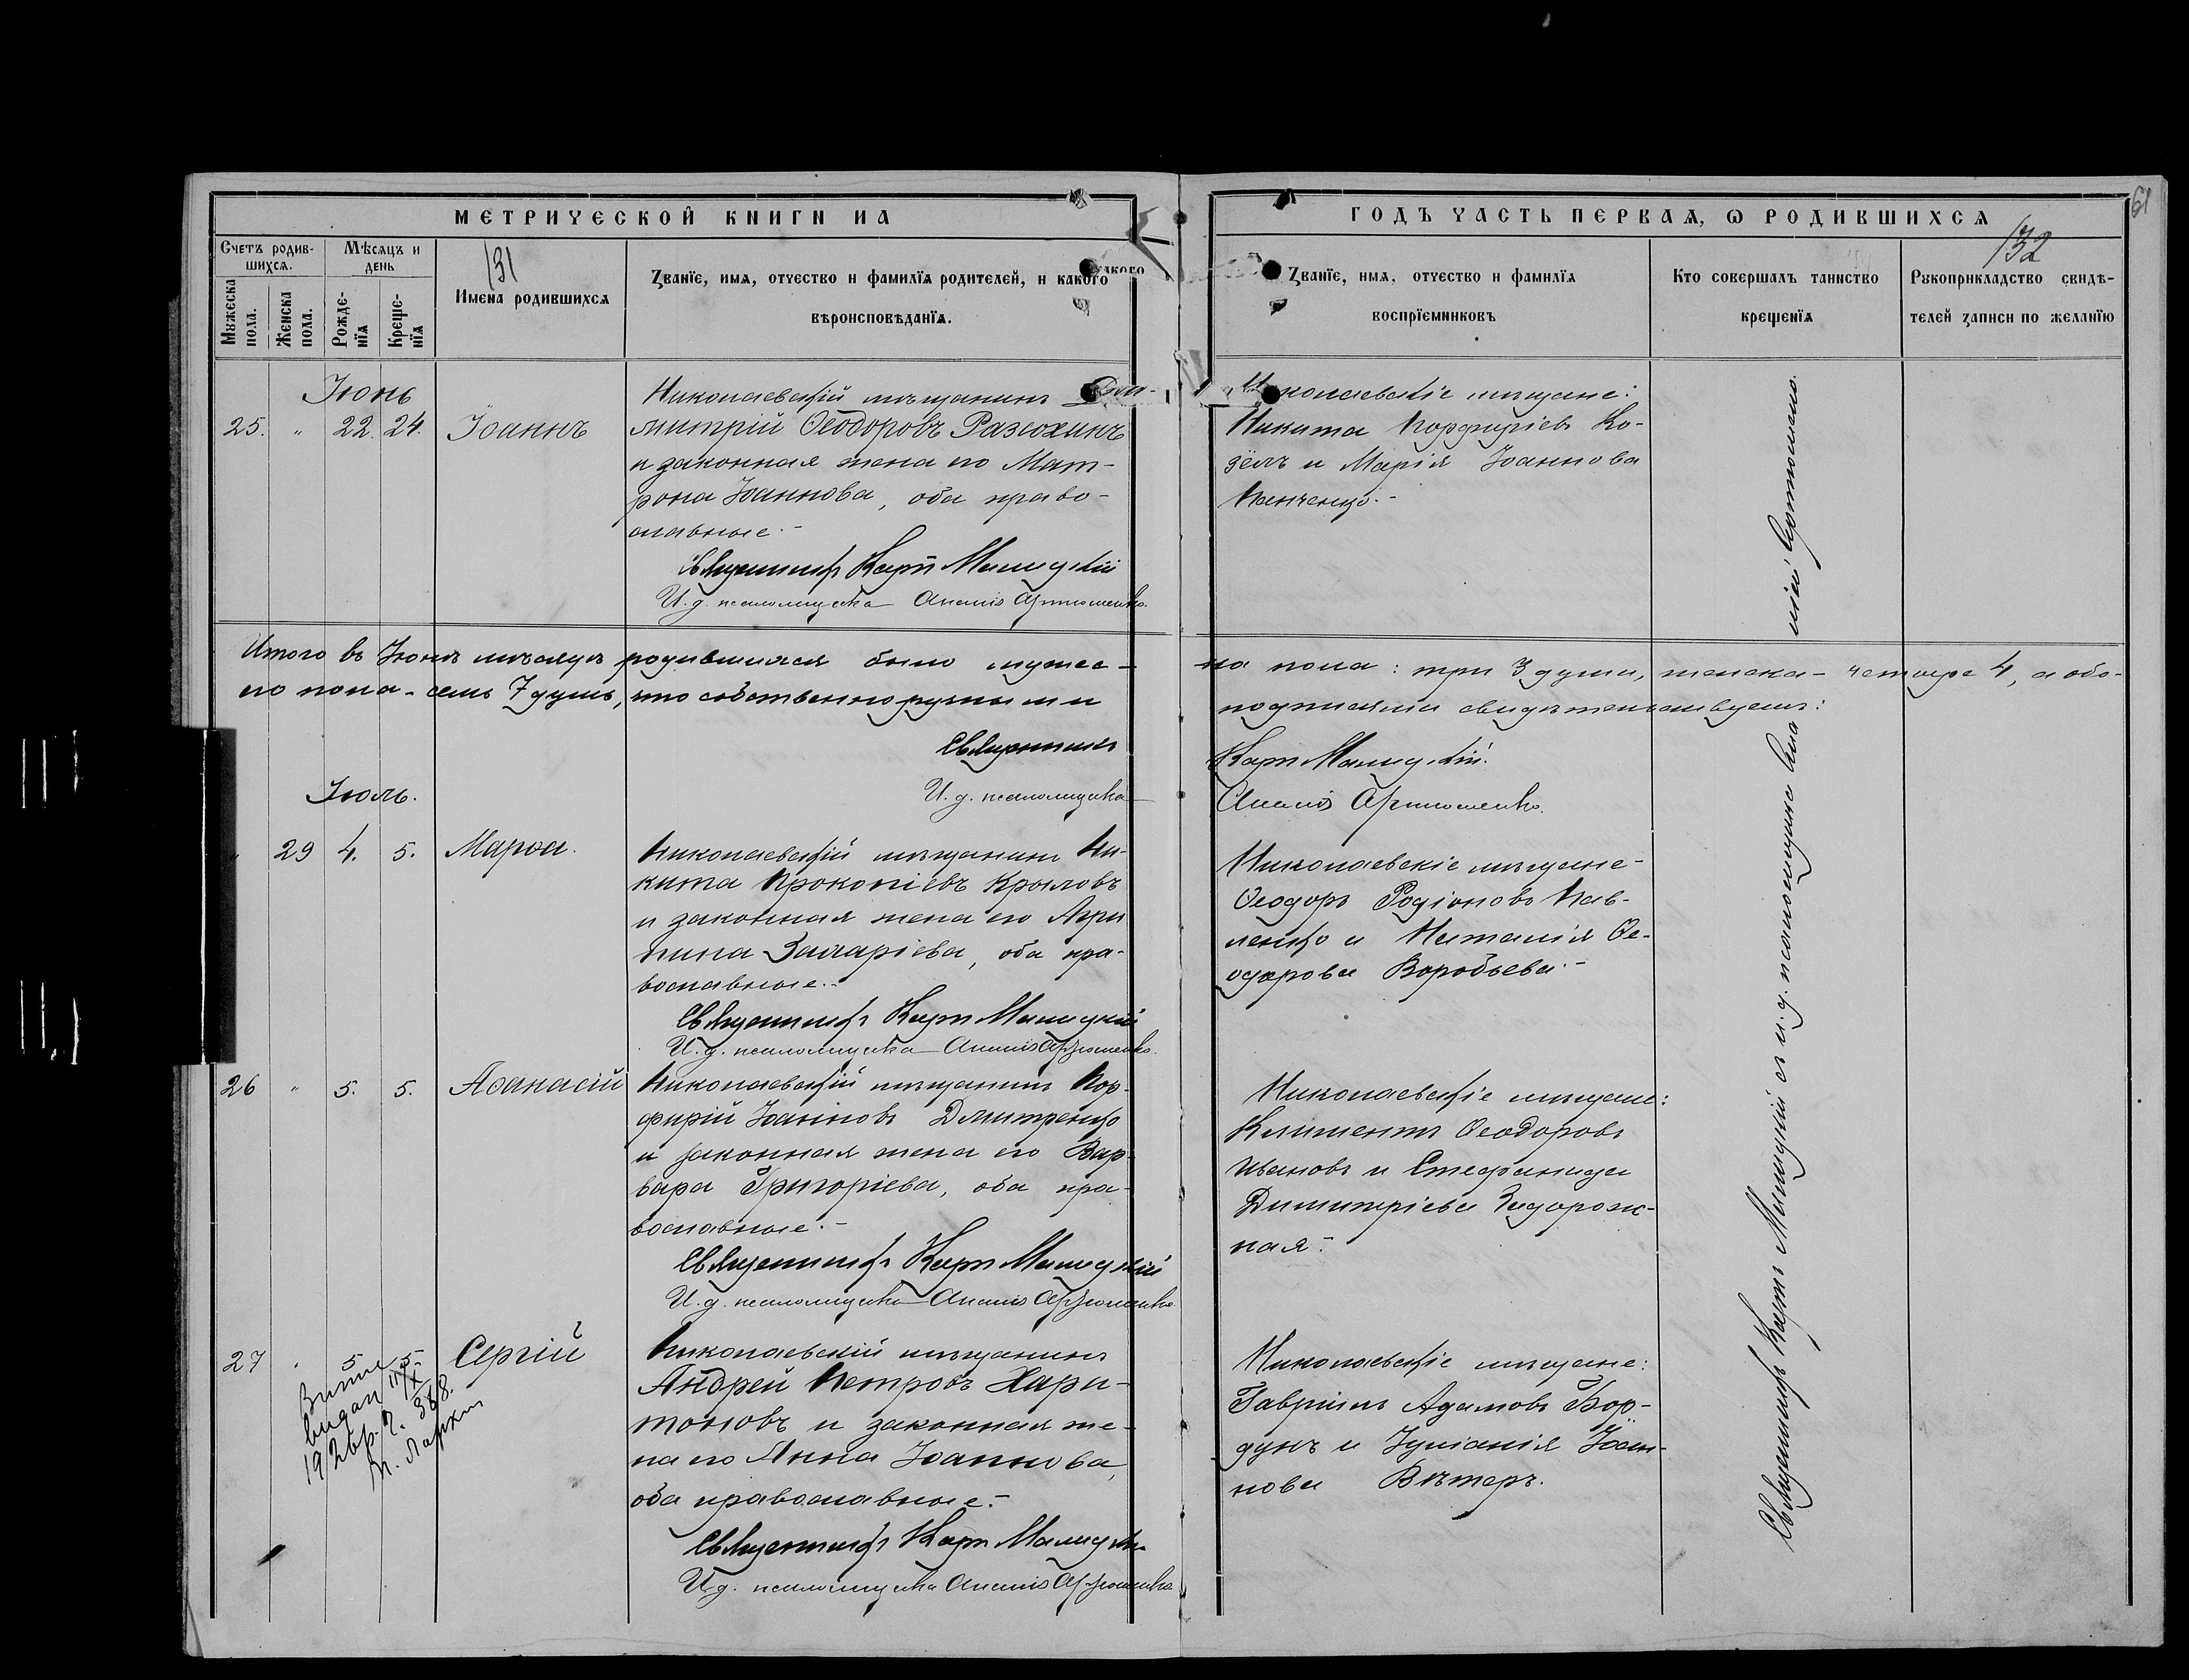 МЕТРИЧЕСКОЙ КНИГИ НА
ГОДЪ ЧАСТЬ ПЕРВАЯ, Ѡ РОДИВШИХСЯ
61
131
132
Счетъ родив-
шихся.
Мужеска
пола.
Женска
пола.
Мѣсяцъ и
день
Рожде-
нїя
Креще-
нїя
Имена родившихся
Званїе, имя, отчество и фамилїя родителей, и какого
вѣроисповѣданїя.
Званїе, имя, отчество и фамилїя
воспрїемниковъ
Кто совершалъ таинство
крещенїя
Рукоприкладство свидѣ-
телей записи по желанїю
Іюнь
25. " 22. 24. Іоаннъ
Николаевскій мѣщанинъ Ди-
митрій Ѳеодоровъ Разсохинъ
и законная жена его Мат-
рона Іоаннова, оба право-
славные.-
Священникъ Карпъ Малицкій
И. д. псаломщика Ананія Артюшенко.
Николаевскіе мѣщане:
Никита Порфиріевъ Ко-
зёлъ и Марія Іоаннова
Панченко.-
Итого въ Іюнѣ мѣсяцѣ родившихся было мужес-
ка пола: три 3 души, женска - четыре 4, а обо-
его пола - семь 7 душъ, что собственноручными
подписями свидѣтельствуемъ:
Священникъ Карпъ Малицкій.
И. д. псаломщика Ананія Артюшенко.
Іюль.
" 29 4. 5. Марѳа.
Николаевскій мѣщанинъ Ни-
кита Прокопіевъ Крыловъ
и законная жена его Агри
пина Захаріева, оба пра-
вославные.-
Священникъ Карпъ Малицкій
И. д. псаломщика Ананія Артюшенко.
Николаевскіе мѣщане-
Ѳеодоръ Родіоновъ Пав-
ленко и Наталія Ѳе-
одорова Воробьева.-
26 " 5. 5. Аѳанасій
Николаевскій мѣщанинъ Пор-
фирій Іоанновъ Дмитренко
и законная жена его Вар-
вара Григоріева, оба пра-
вославные.-
Священникъ Карпъ Малицкій
И. д. псаломщика Ананія Артюшенко.
Николаевскіе мѣщане:
Климентъ Ѳеодоровъ
Ивановъ и Стефанида
Димитріева Задорож-
ная.-
27 " 5 5 Сергій
Николаевскій мѣщанинъ
Андрей Петровъ Хари-
тоновъ и законная же-
на его Анна Іоаннова,
оба православные.-
Священникъ Карпъ Малицкій
И. д. псаломщика Ананія Артюшенко
Николаевскіе мѣщане:
Гавріилъ Адамовъ Бор-
дунъ и Іуліанія Іоан-
нова Вѣтеръ.
видан
192 р. 388.
Священникъ Карпъ Малицкій съ и. д. псаломщика Ана
ніей Артюшенко.